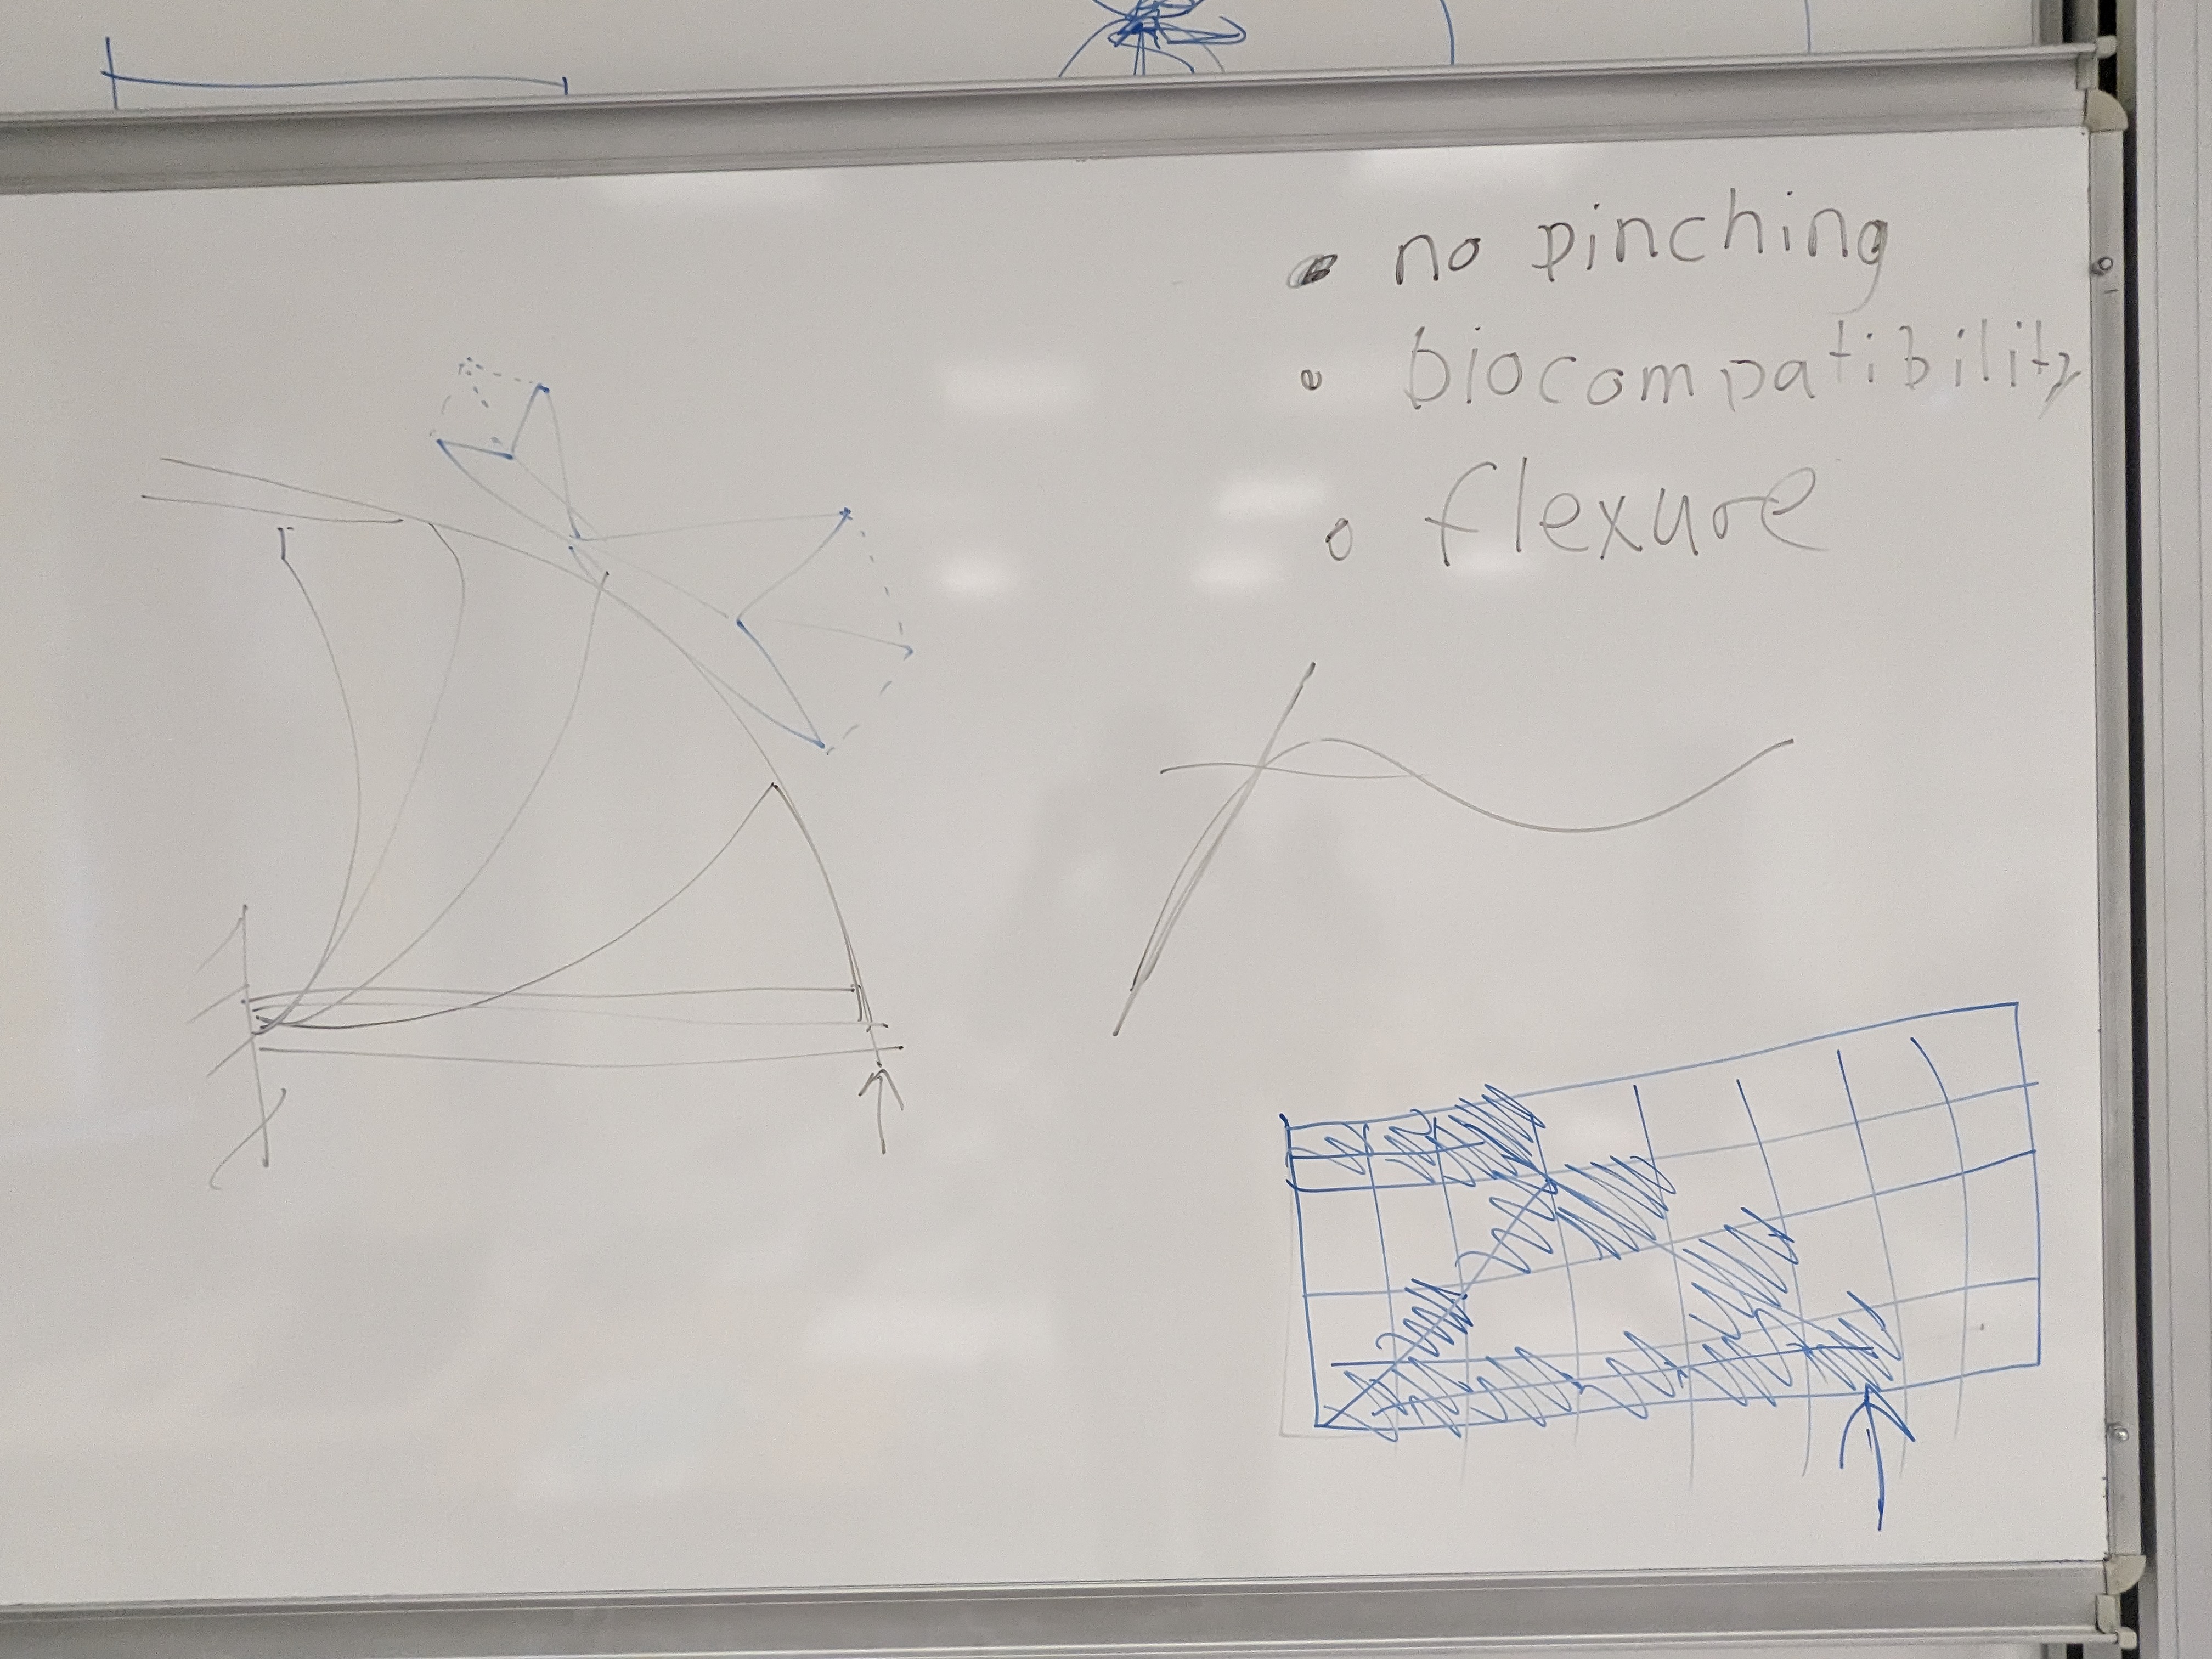 no pinching
biocompatibility
flexure